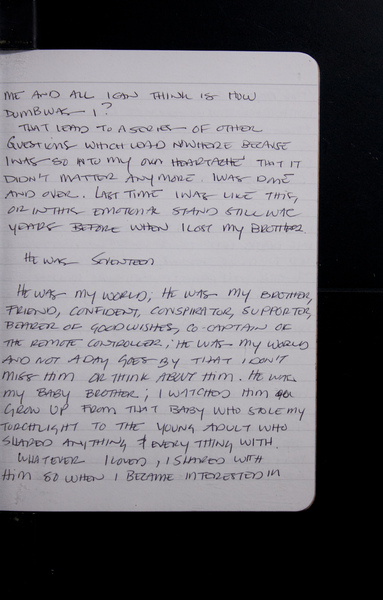 ME AND ALL I CAN THINK IS HOW
DUMB WAS I?
THAT LEAD TO A SERIES OF OTHER
QUESTIONS WHICH LEAD NOWHERE BECAUSE
I WAS SO INTO MY OWN HEARTACHE THAT IT
DIDN'T MATTER ANYMORE. I WAS DONE
AND OVER. LAST TIME I WAS LIKE THIS,
OR IN THIS EMOTIONAL STAND STILL WAS
YEARS BEFORE WHEN I LOST MY BROTHER
HE WAS SEVENTEEN
HE WAS MY WORLD; HE WAS MY BROTHER,
FRIEND, CONFIDENT, CONSPIRATOR, SUPPORTER,
BEARER OF GOODWISHES, CO-CAPTAIN OF
THE REMOTE CONTROLLER; HE WAS MY WORLD
AND NOT A DAY GOES BY THAT I DON'T
MISS HIM OR THINK ABOUT HIM. HE WAS
MY BABY BROTHER; I WATCHED HIM
GROW UP FROM THAT BABY WHO STOLE MY
TORCHLIGHT TO THE YOUNG ADULT WHO
SHARED ANYTHING & EVERYTHING WITH.
WHATEVER I LOVED, I SHARED WITH
HIM SO WHEN I BECAME INTERESTED IN